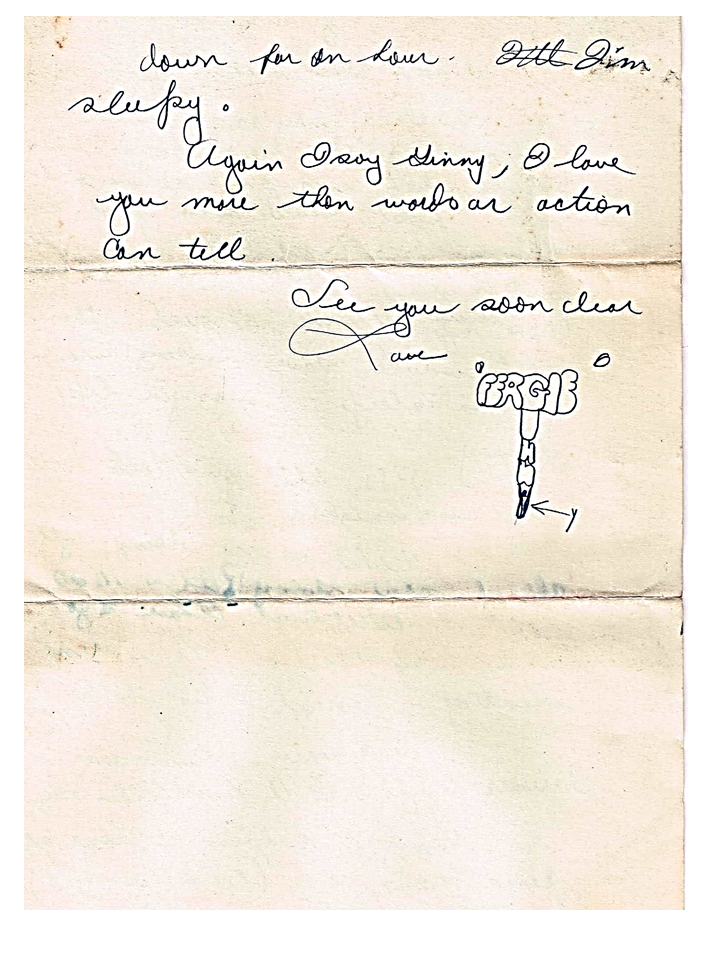 down for an hour. I'm
sleepy.
Again I say Ginny, I love
you more than words or action
can tell.
See you soon dear
Love
"FERGIE"
Y